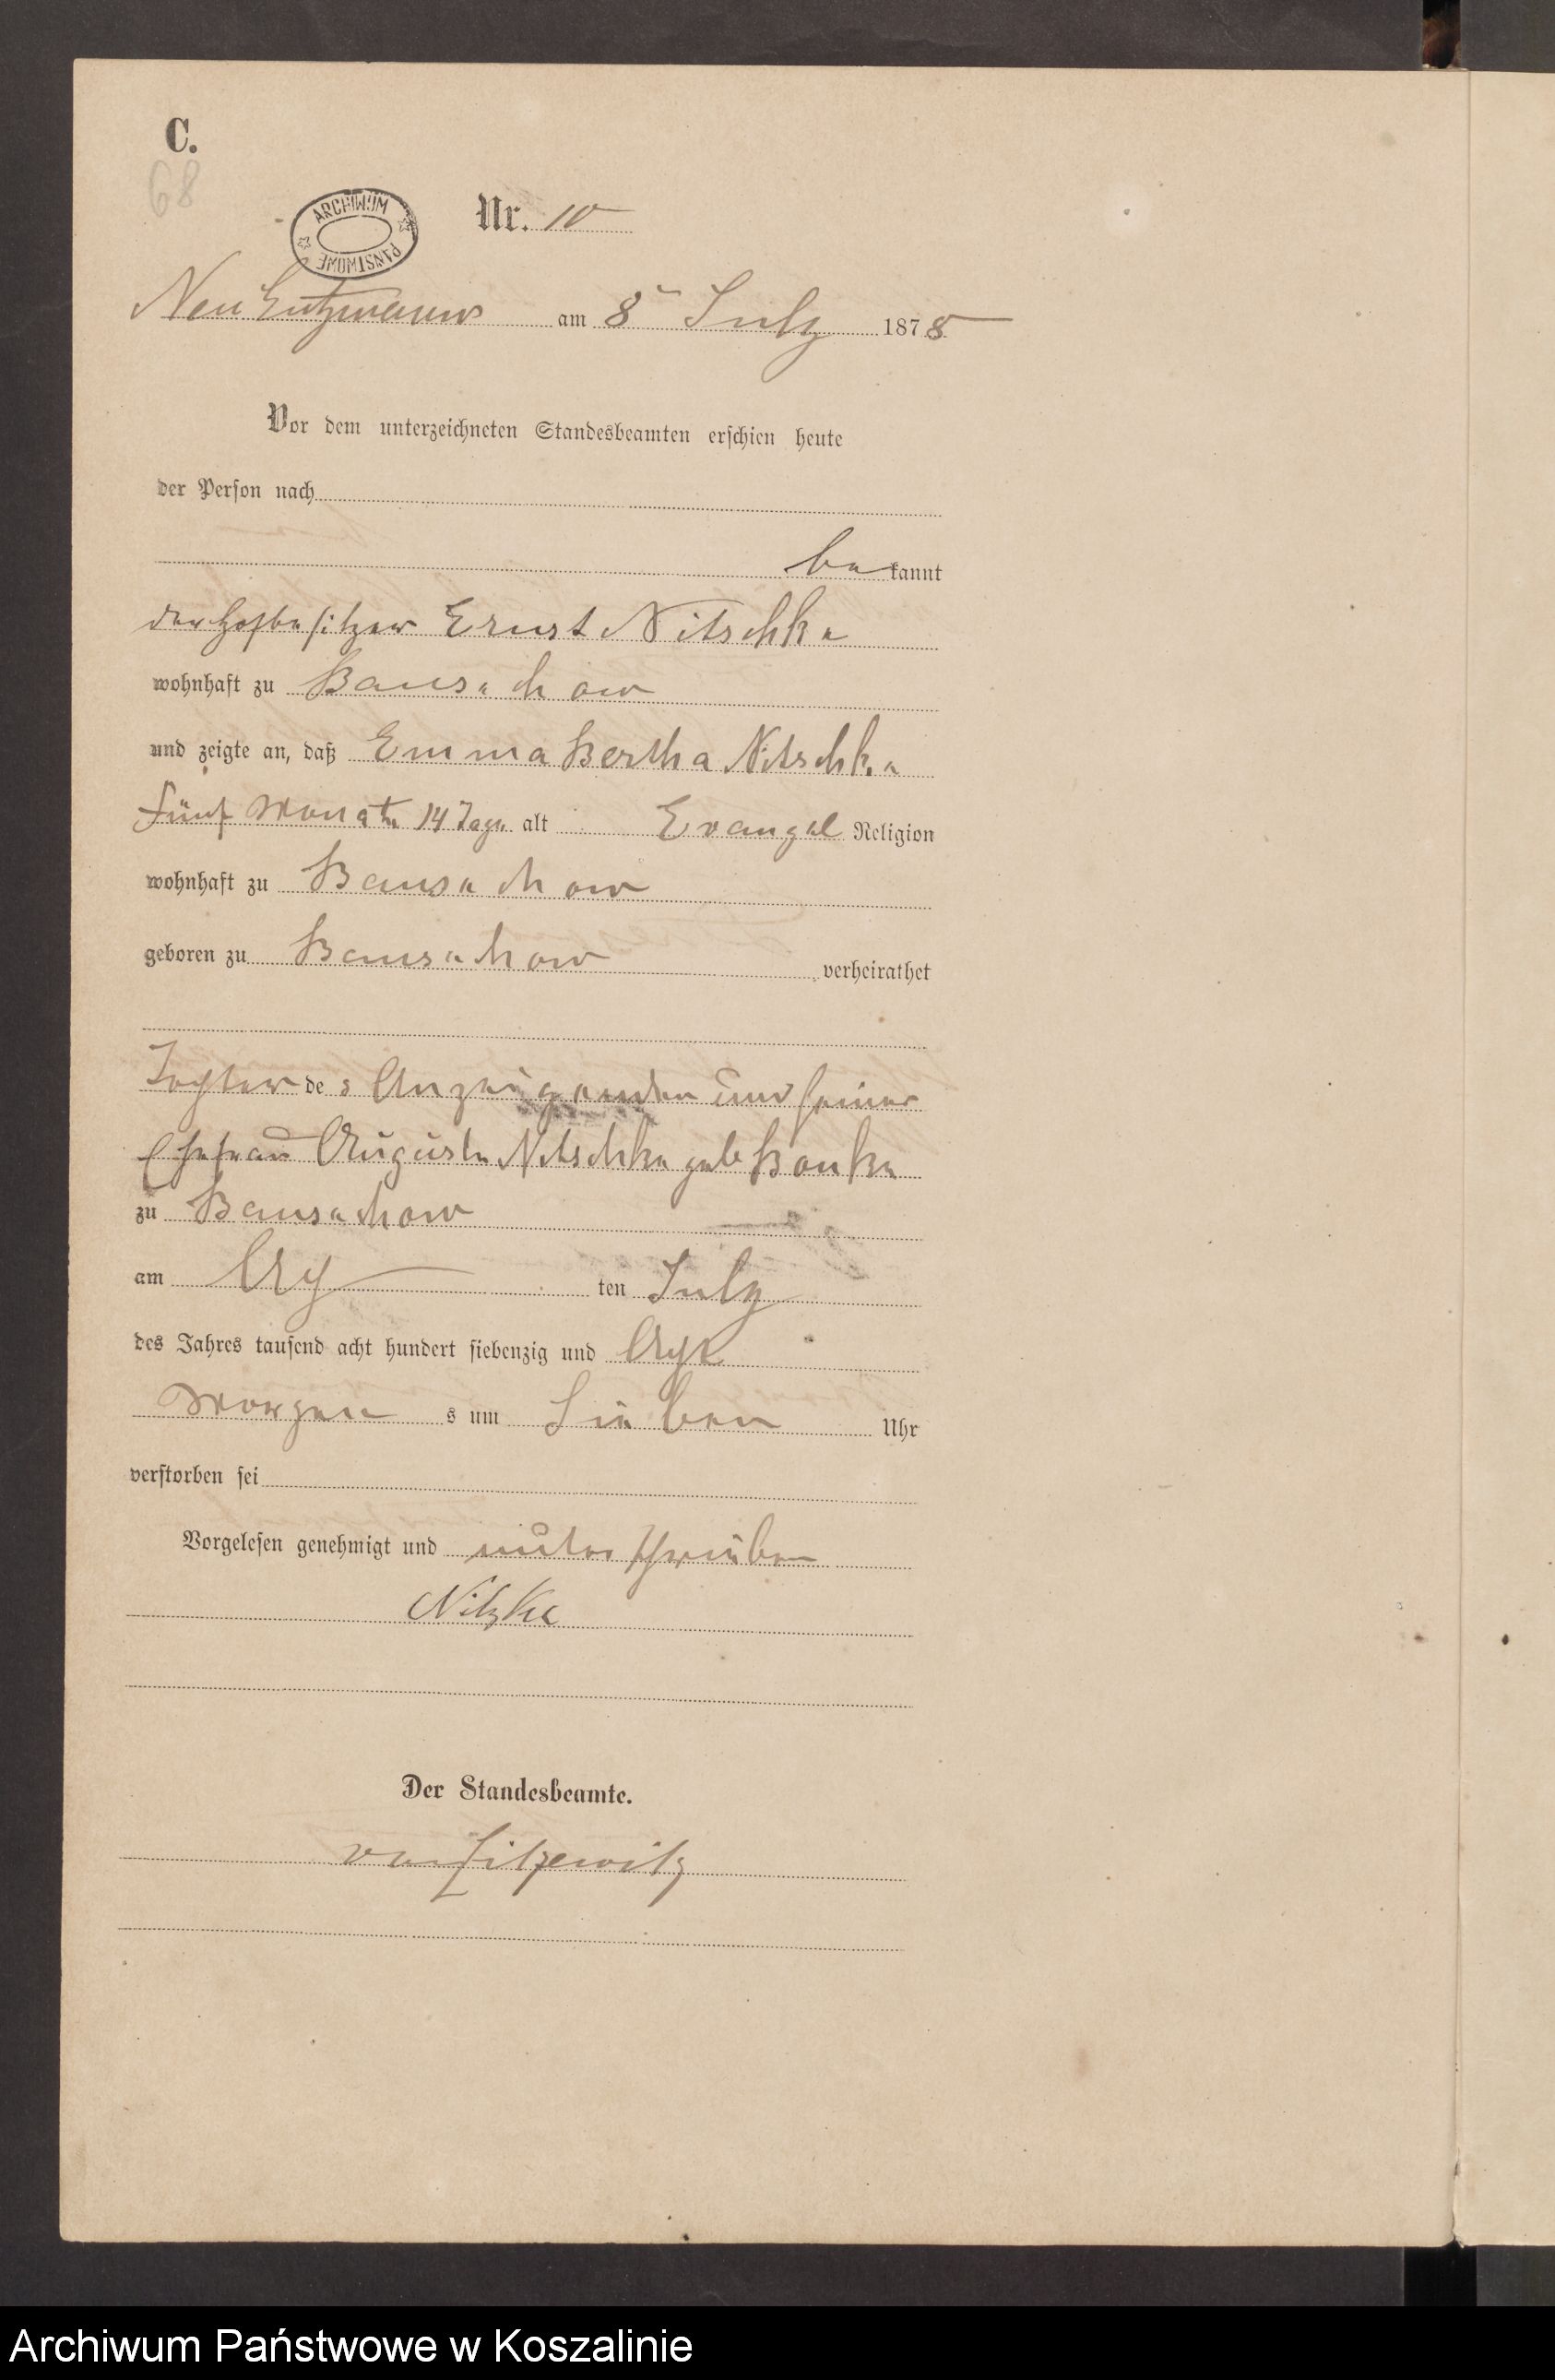 C.
68
ARCHIWUM PAŃSTWOWE
Nr. 10
am 8 July 1878
Vor dem unterzeichneten Standesbeamten erschien heute
der Person nach
be kannt
der Hofbesitzer Ernst Nitschke
wohnhaft zu Bansechow
und zeigte an, daß Emma Bertha Nitschke
fünf Monate 14 Tage alt Evangel Religion
wohnhaft zu Bansechow
geboren zu Bansechow verheirathet
Tochter de s Anzeigenden und seiner
Ehefrau Auguste Nitschke geb
zu Bansechow
am Acht ten July
des Jahres tausend acht hundert siebenzig und Acht
Morgen s um Sieben Uhr
verstorben sei
Vorgelesen genehmigt und unterschrieben
Nitzke
Der Standesbeamte.
von Zitzewitz
Archiwum Państwowe w Koszalinie